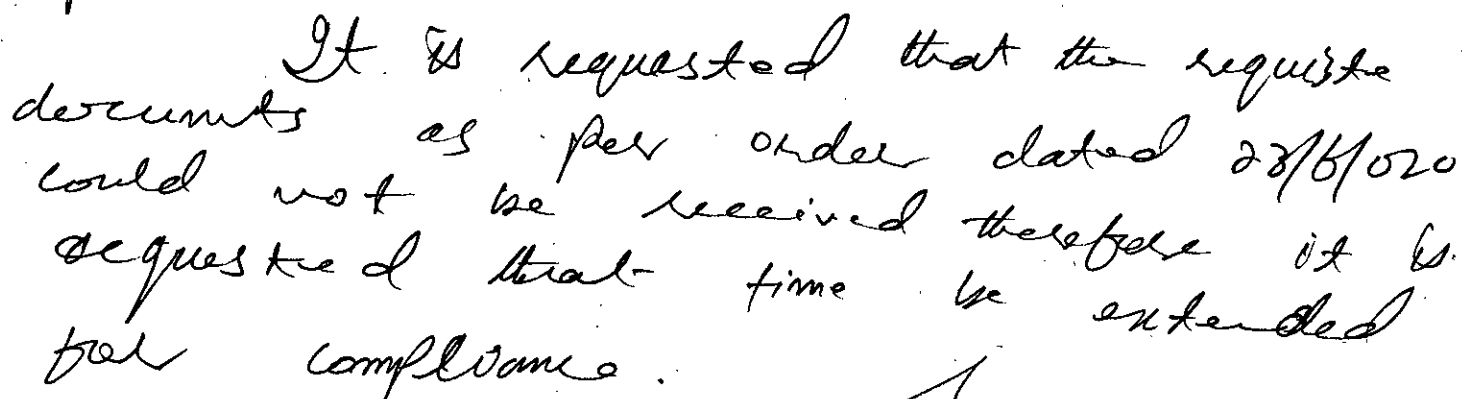 It is requested that the requiste
documnts as per order dated
could not be received therefore it is
requested that time be extended
for compliance.